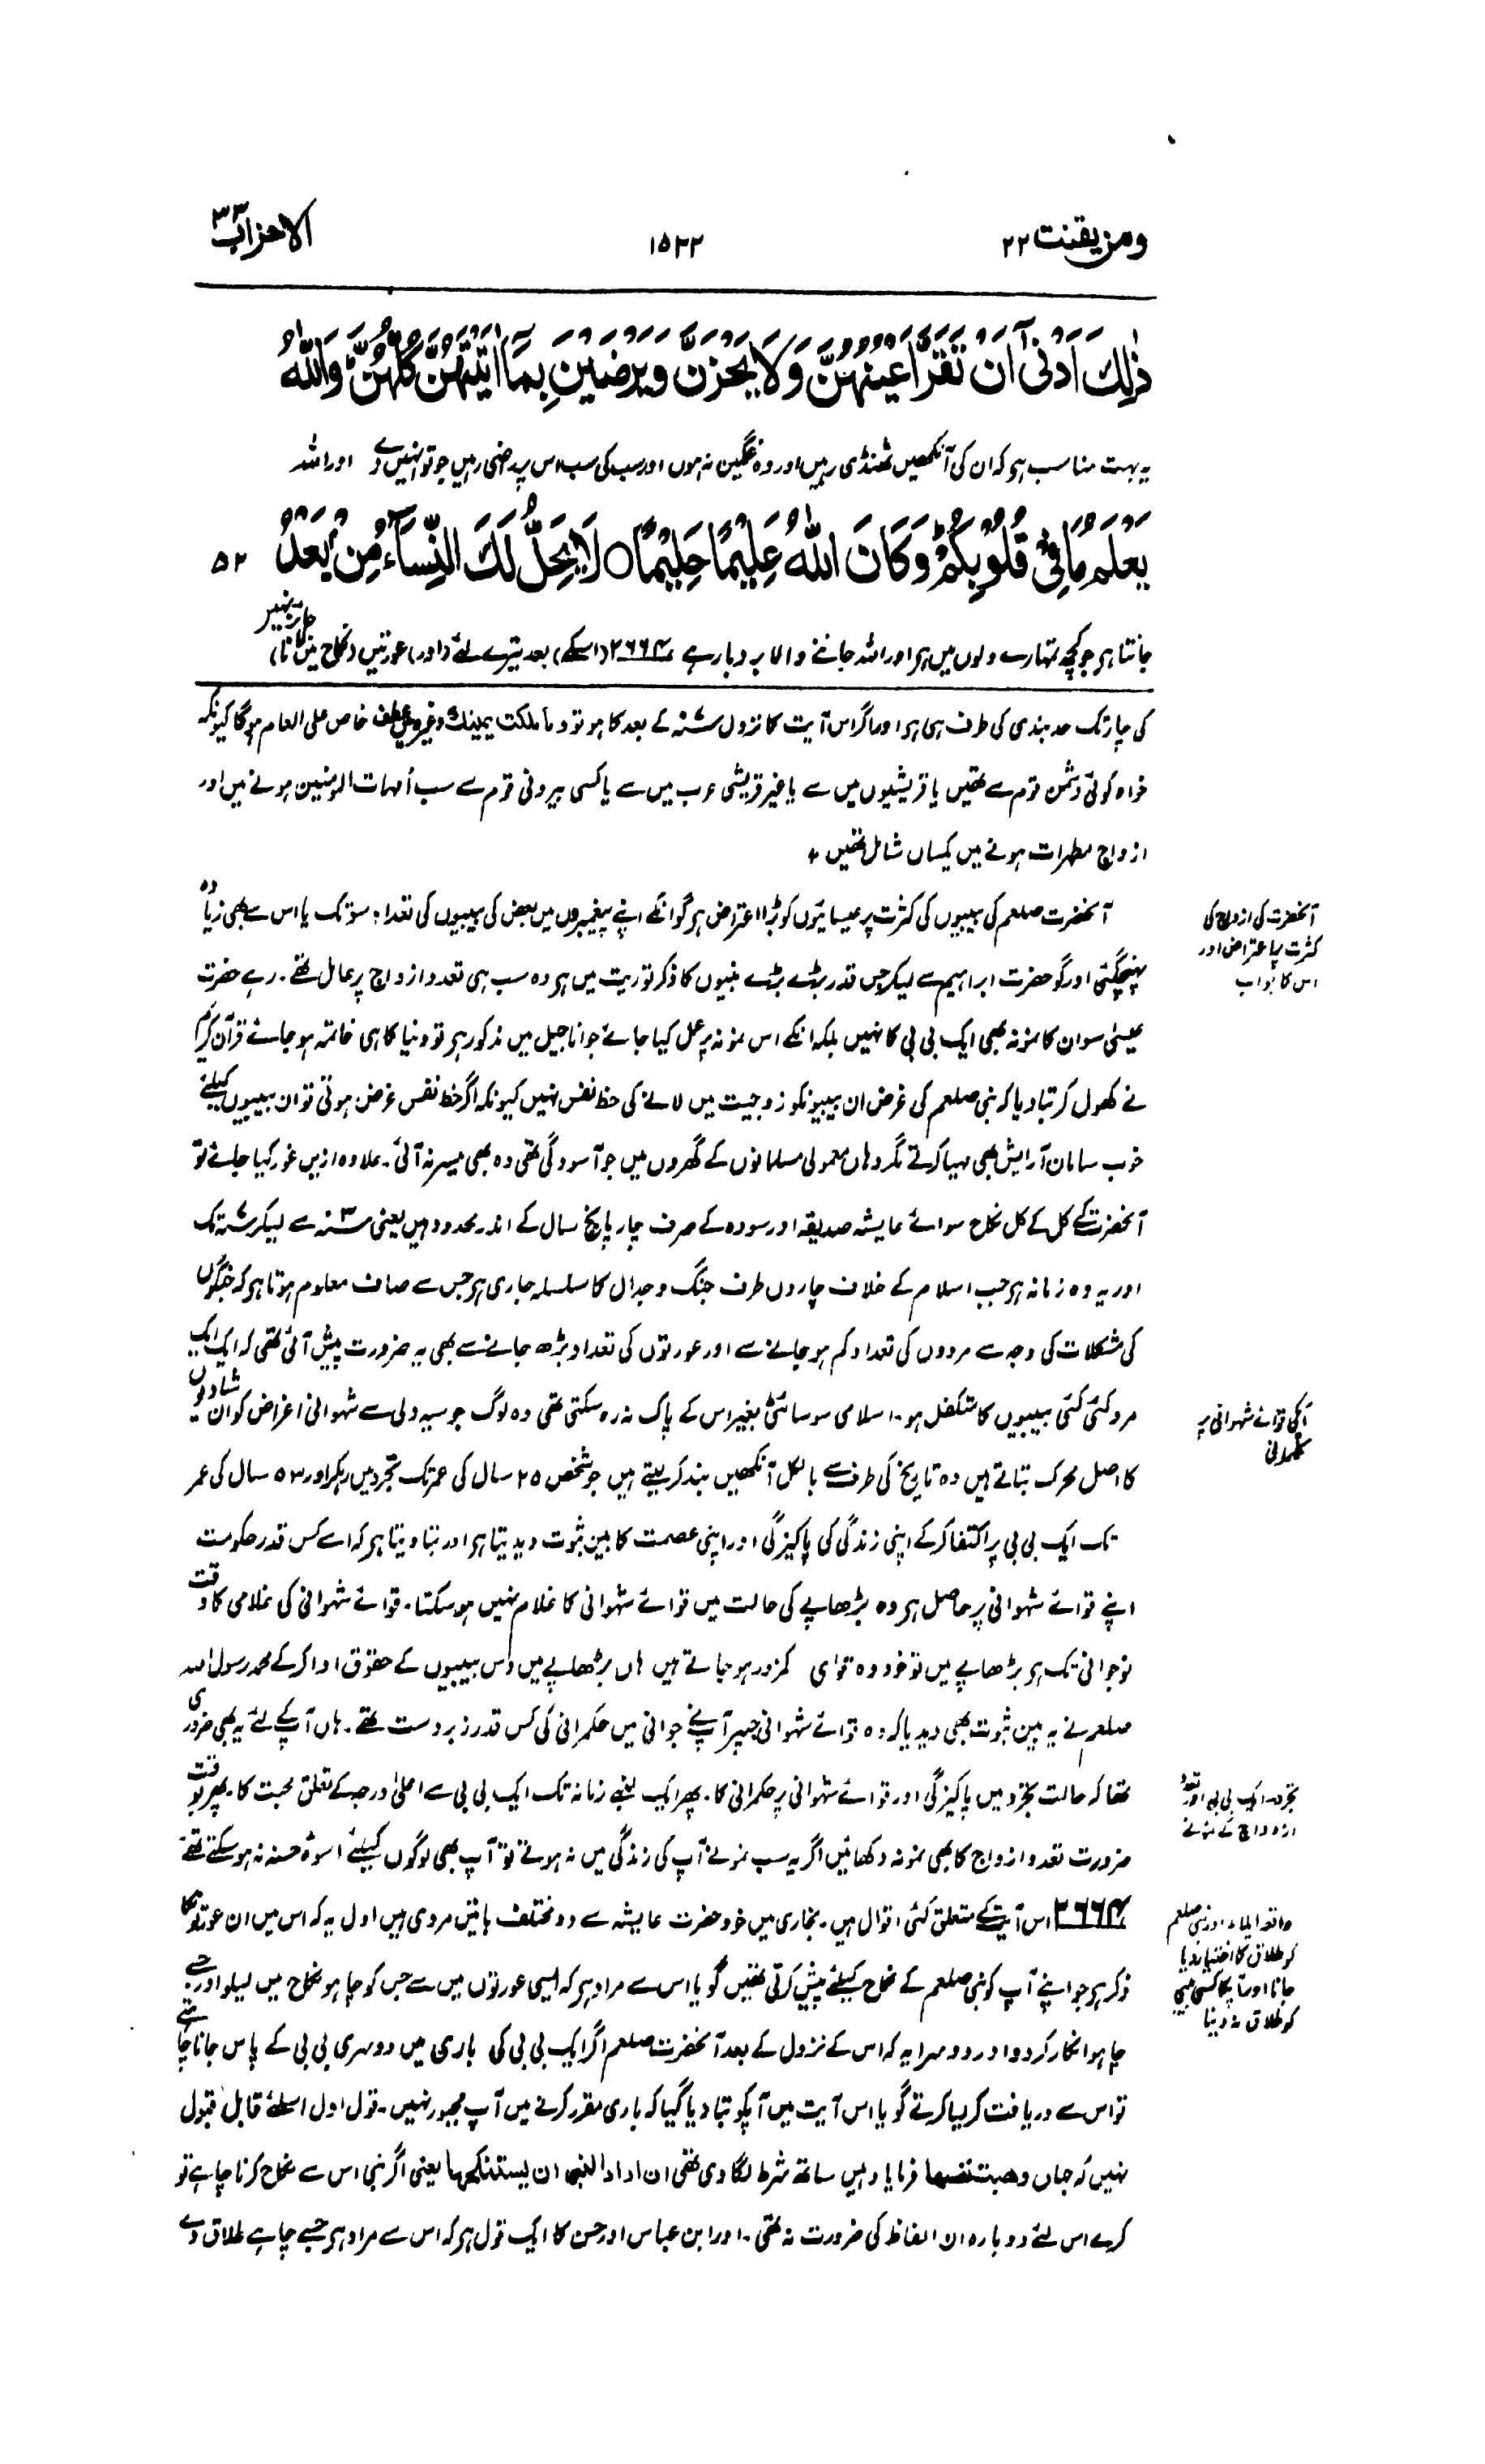 ومن یقنت ۲۲
۱۵۲۲
الاحزاب ۳۳
ذٰلِكَ اَدْنٰۤى اَنْ تَقَرَّ اَعْیُنُهُنَّ وَ لَا یَحْزَنَّ وَ یَرْضَیْنَ بِمَاۤ اٰتَیْتَهُنَّ كُلُّهُنَّ ؕ وَ اللّٰهُ
یہ بہت مناسب ہو کہ ان کی آنکھیں ٹھنڈی رہیں اور وہ غمگین نہ ہوں اور سب کی سب اس پر راضی رہیں جو تو انہیں دے اور اللہ
یَعْلَمُ مَا فِیْ قُلُوْبِكُمْ ؕ وَ كَانَ اللّٰهُ عَلِیْمًا حَلِیْمًا ○ لَا یَحِلُّ لَكَ النِّسَآءُ مِنْۢ بَعْدُ
۵۲
جانتا ہر جو کچھ تمہارے دلوں میں ہر اور اللہ جاننے والا بردبار ہے ۲۶۶۴ (اسکے) بعد تیرے لئے (اور) عورتیں (نکاح میں لانا) جائز نہیں
کی چار تک حد بندی کی طرف ہی ہر اور اگر اس آیت کا نزول سنہ کے بعد کا ہو تو وما ملکت یمینك وغیرہ میں عطف خاص علی العام ہوگا کیونکہ
خواہ کوئی دشمن قوم سے تھیں یا قریشیوں میں سے یا غیر قریشی عرب میں سے یا کسی بیرونی قوم سے سب اُمہات المومنین ہونے میں اور
ازواج مطہرات ہونے میں یکساں شامل تھیں +
آنحضرت صلعم کی بیبیوں کی کثرت پر عیسائیوں کو بڑا اعتراض ہر گو انکے اپنے پیغمبروں میں بعض کی بیبیوں کی تعداد سو تک یا اس سے بھی زیادہ
پہنچ گئی اور گو حضرت ابراہیم سے لیکر جس قدر بڑے بڑے نبیوں کا ذکر توریت میں ہر وہ سب ہی تعدد ازواج پر عامل تھے۔ رہے حضرت
عیسیٰ سو ان کا نمونہ بھی ایک بی بی کا نہیں بلکہ انکے اس نمونہ پر عمل کیا جائے جو اناجیل میں مذکور ہر تو دنیا کا ہی خاتمہ ہو جائے قرآن کریم
نے کھول کر بتا دیا کہ نبی صلعم کی غرض ان بیبیونکو زوجیت میں لانے کی حظ نفس نہیں کیونکہ اگر حظ نفس غرض ہوتی تو ان بیبیوں کیلئے
خوب سامان آرایش بھی مہیا کرتے مگر وہاں معمولی مسلمانوں کے گھروں میں جو آسودگی تھی وہ بھی میسر نہ آئی۔ علاوہ ازیں غور کیا جائے تو
آنحضرت کے کل کے کل نکاح سوائے عایشہ صدیقہ اور سودہ کے صرف چار پانچ سال کے اندر محدود ہیں یعنی سنہ ۳ سے لیکر سنہ تک
اور یہ وہ زمانہ ہر جب اسلام کے خلاف چاروں طرف جنگ و جدال کا سلسلہ جاری ہر جس سے صاف معلوم ہوتا ہر کہ جنگوں
کی مشکلات کی وجہ سے مردوں کی تعداد کم ہو جانے سے اور عورتوں کی تعداد بڑھ جانے سے بھی یہ ضرورت پیش آئی تھی کہ ایک ایک
مرد کئی کئی بیبیوں کا متکفل ہو۔ اسلامی سوسائٹی بغیر اس کے پاک نہ رہ سکتی تھی وہ لوگ جو سیہ دلی سے شہوانی اغراض کو ان شادیوں
کا اصل محرک بتاتے ہیں وہ تاریخ کی طرف سے بالکل آنکھیں بند کر لیتے ہیں جو شخص ۲۵ سال کی عمر تک تجرد میں رہکر اور ۵۳ سال کی عمر
تک ایک بی بی پر اکتفا کر کے اپنی زندگی کی پاکیزگی اور اپنی عصمت کا بین ثبوت دیدیتا ہر اور بتا دیتا ہر کہ اسے کس قدر حکومت
اپنے قوائے شہوانی پر حاصل ہر وہ بڑھاپے کی حالت میں قوائے شہوانی کا غلام نہیں ہو سکتا۔ قوائے شہوانی کی غلامی کا وقت
نوجوانی تک ہر بڑھاپے میں تو خود وہ قوای کمزور ہو جاتے ہیں ہاں بڑھاپے میں دس بیبیوں کے حقوق ادا کر کے محمد رسول اللہ
صلعم نے یہ بین ثبوت بھی دیدیا کہ وہ قوائے شہوانی جنپر آپنے جوانی میں حکمرانی کی کس قدر زبردست تھے۔ ہاں آپ کے لئے یہ بھی ضروری
تھا کہ حالت تجرد میں پاکیزگی اور قوائے شہوانی پر حکمرانی کا۔ پھر ایک لمبے زمانہ تک ایک بی بی سے اعلیٰ درجہ کے تعلق محبت کا۔ پھر بوقت
ضرورت تعدد ازواج کا بھی نمونہ دکھائیں اگر یہ سب نمونے آپ کی زندگی میں نہ ہوتے تو آپ بھی لوگوں کیلئے اسوۂ حسنہ نہ ہو سکتے تھے
۲۶۶۴ اس آیت کے متعلق کئی اقوال ہیں۔ بخاری میں خود حضرت عایشہ سے دو مختلف باتیں مروی ہیں اول یہ کہ اس میں ان عورتونکا
ذکر ہر جو اپنے آپ کو نبی صلعم کے نکاح کیلئے پیش کرتی تھیں گویا اس سے مراد ہر کہ ایسی عورتوں میں سے جس کو چاہو نکاح میں لیلو اور جسے
چاہو انکار کردو اور دوسرا یہ کہ اس کے نزول کے بعد آنحضرت صلعم اگر ایک بی بی کی باری میں دوسری بی بی کے پاس جانا چاہتے
تو اس سے دریافت کر لیا کرتے گویا اس آیت میں آپکو بتا دیا گیا کہ باری مقرر کرنے میں آپ مجبور نہیں۔ قول اول اسلئے قابل قبول
نہیں کہ جہاں وهبت نفسها فرمایا وہیں ساتھ شرط لگا دی تھی ان اراد النبی ان یستنكحها یعنی اگر نبی اس سے نکاح کرنا چاہے تو
کرے اس لئے دوبارہ ان الفاظ کی ضرورت نہ تھی۔ اور ابن عباس اور حسن کا ایک قول ہر کہ اس سے مراد ہر جسے چاہے طلاق دے
آنحضرت کی ازواج کی
کثرت پر اعتراض اور
اس کا جواب
آپکی قوائے شہوانی پر
حکمرانی
تجرد ایک بی بی اور تعدد
ازدواج کے نمونے
واقعہ ایلاء اور نبی صلعم
کو طلاق کا اختیار دیا
جانا اور آپکا کسی بی بی
کو طلاق نہ دینا